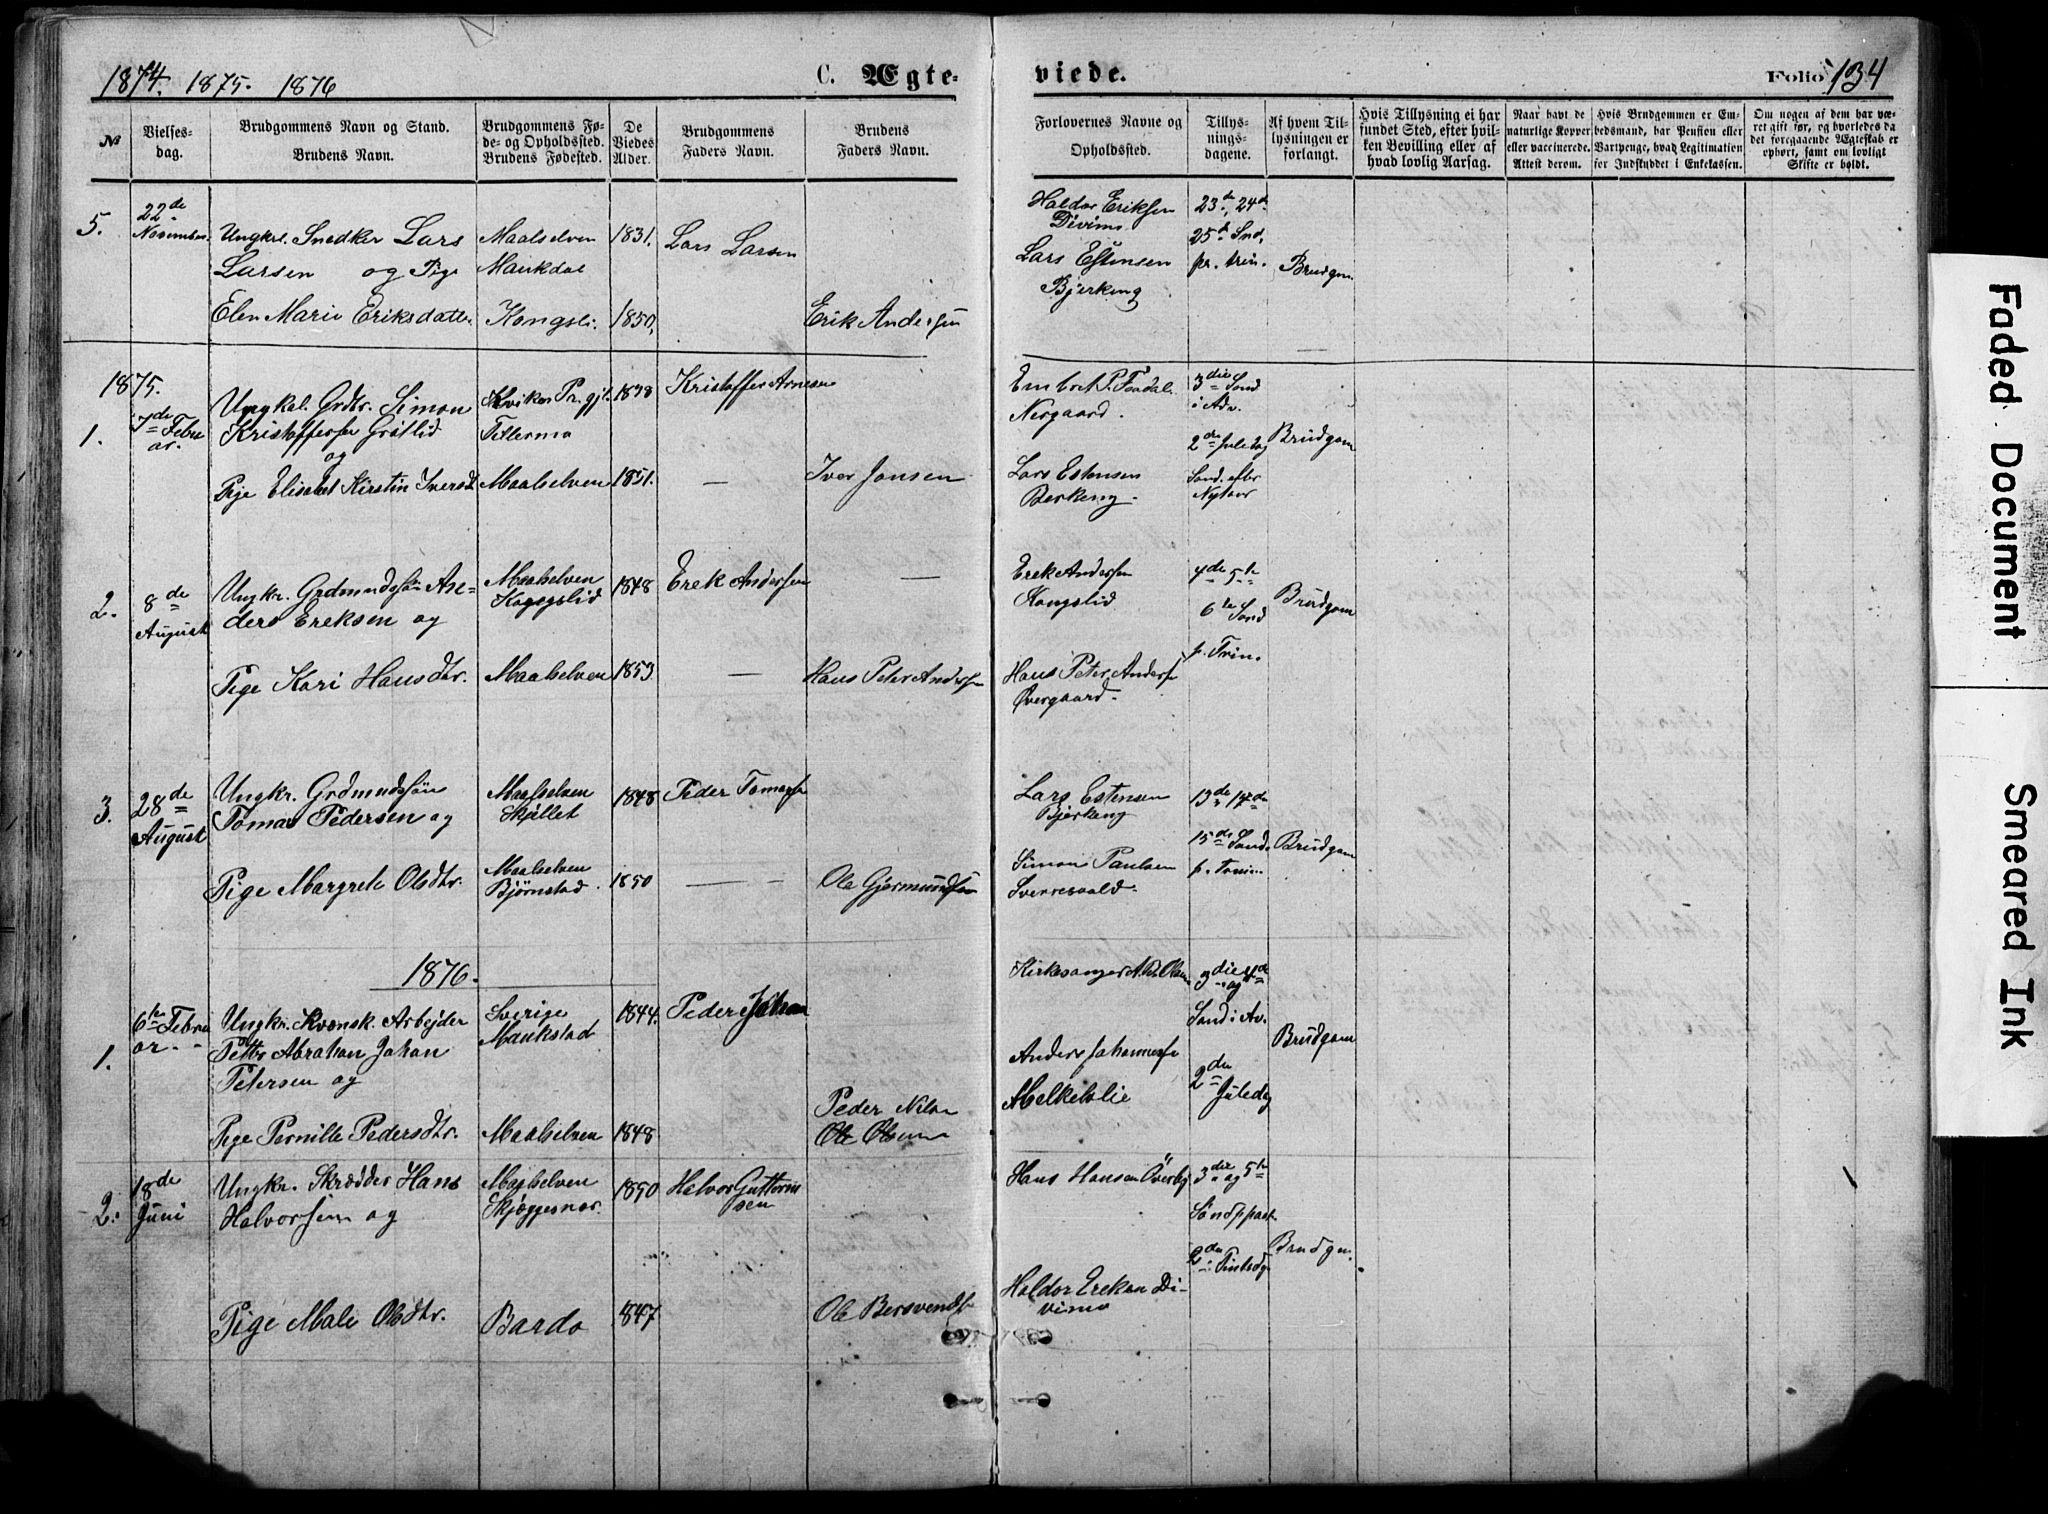 1874. 1875. 1876
C. Ægte-
viede.
Folio 134
No
Vielses-
dag.
Brudgommens Navn og Stand.
Brudens Navn.
Brudgommens Fø-
de- og Opholdssted.
Brudens Fødested.
De
Viedes
Alder.
Brudgommens
Faders Navn.
Brudens
Faders Navn.
Forlovernes Navne og
Opholdssted.
Tillys-
nings-
dagene.
Af hvem Til-
lysningen er
forlangt.
Hvis Tillysning ei har
fundet Sted, efter hvil-
ken Bevilling eller af
hvad lovlig Aarsag.
Naar havt de
naturlige Kopper
eller vaccinerede.
Attest derom.
Hvis Brudgommen er Em-
bedsmand, har Pension eller
Vartpenge, hvad Legitimation
for Indskuddet i Enkekassen.
Om nogen af dem har væ-
ret gift før, og hvorledes da
det foregaaende Ægteskab er
ophørt, samt om lovligt
Skifte er holdt.
5.
22de
November
Ungkrl. Snedker Lars
Larsen og Pige
Elen Marie Eriksdatter
Maalselven
Maukdal
Kongsli.
1831.
1850.
Lars Larsen
Erik Andersen
Haldor Eriksen
Divimo
Lars Estensen
Bjerkeng
23de, 24de
25de Snd,
pr. trin.
Brudgom
1875.
1.
7de Febru
ar.
Ungkal. Grdtr. Simon
Kristoffersen Grøtlid
og
Pige Elisabet Kirstin Iversd
Kvikne Pr.gjl.
Maalselven
1851.
Kristoffer Arnesen
—
Iver Jonsen
Embret P. Fosdal
Nergaard.
Lars Estensen
Berkeng.
3die Sond
i Adv.
2den Juledag
Sond. efter
Nytaar
Brudgom
2.
8de
August
Ungkr. Grdmundssøn An-
ders Ereksen og
Pige Kari Hansdtr.
Maalselven
Kongslid
Maalselven
1848
1853
Erek Andersen
—
—
Hans Peter Andersen
Erek Andersen
Kongslid
Hans Peter Andersen
Øvergaard.
4de 5te
6te Sond
p. Trin.
Brudgom
3.
28de
August
Ungkr. Grdmundssøn
Tomas Pedersen og
Pige Margrete Olsdtr.
Maalselven
Skjøllet
Maalselven
Bjørnstad.
1848
1850
Peder Tomass
— —
Ole Gjermundsen
Lars Estensen
Bjerkeng
Simon Paulsen
13de 14de
15de Sond.
p. Trin.
Brudgom
1876.
1.
6te Febru
ar.
Ungkr. Kvensk. Arbejder
Abraham Johan
Petersen og
Pige Pernille Pedersdtr.
Sverige
Maukstad
Maalselven
1844.
1848.
Peder Johan
Peder Nilsen
Ole Olsen
Anders Johannesen
Melkelie
3die og 4de
Sond i Av.
2den
Juledag
Brudgom
2.
18de
Juni
Ungkr. Skrædder Hans
Halvorsen og
Pige Mali Olsdtr.
Maalselven
Bardo
1850
1847
Halvor Guttorm
sen
Ole Bersvends
Hans Hansen Överby
Haldor Ereksen Di-
vimo
3die og 5te
2den Pintsdg
Brudgm.
Faded Document
Smeared Ink